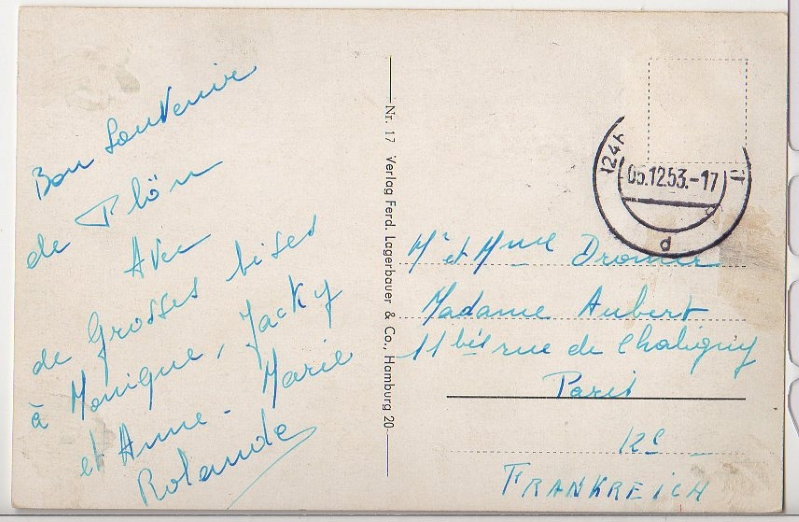 Bon Souvenir
de Plön
Avec
de Grosses bises
à Monique, Jacky
et Anne-Marie
Rolande
Nr. 17 Verlag Ferd. Lagerbauer & Co., Hamburg 20
(24
05.12.53.-17
d
Mr et Mme
Madame Aubert
11 bis rue de Chaligny
Paris
12e
FRANKREICH